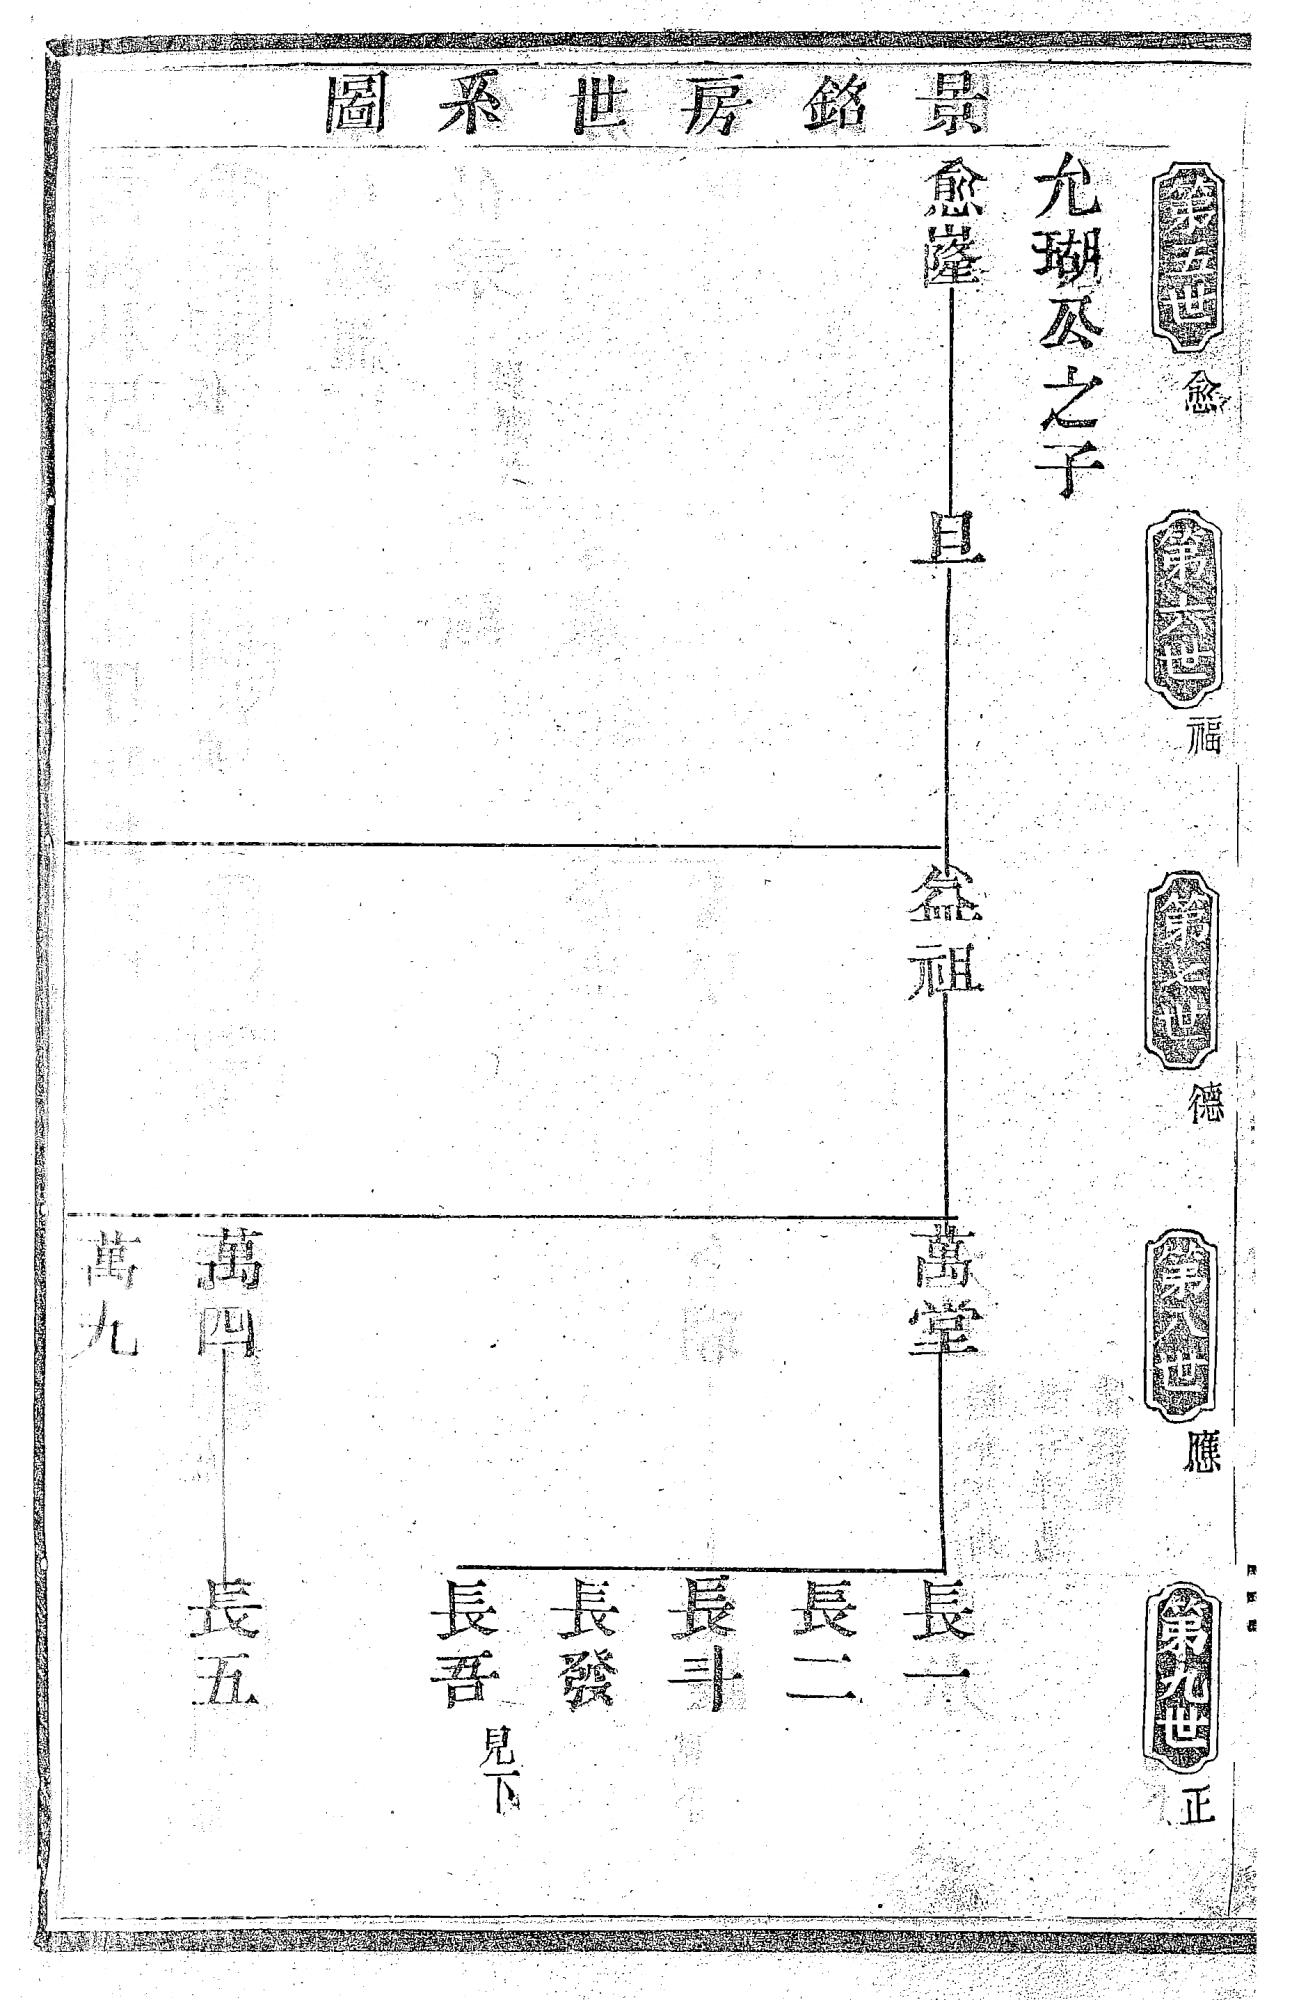 景銘房世系圖
第五世
愈
第六世
福
第七世
德
第八世
應
第九世
正
允瑚公之子
愈隆
旦
益祖
萬堂
長一
長二
長斗
長發
長吾
見下
萬四
長五
萬九